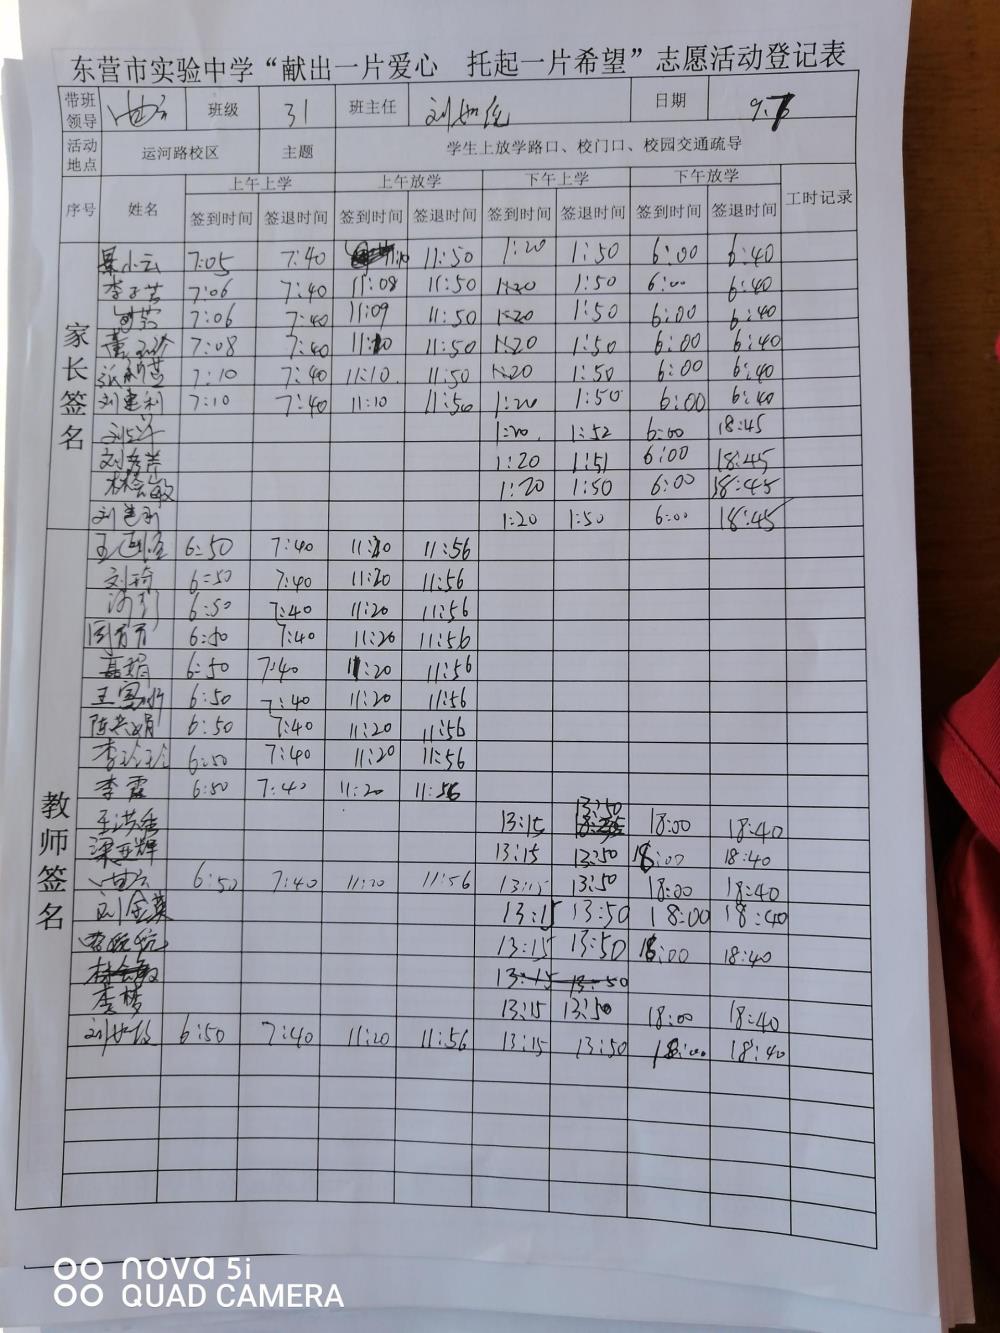 东营市实验中学“献出一片爱心 托起一片希望”志愿活动登记表
带班领导 班级 31 班主任 日期 9.
活动地点 运河路校区 主题 学生上放学路口、校门口、校园交通疏导
序号 姓名 上午上学 上午放学 下午上学 下午放学 工时记录
签到时间 签退时间 签到时间 签退时间 签到时间 签退时间 签到时间 签退时间
家长签名
小云 7:05 7:40 11:50 1:20 1:50 6:00 6:40
7:06 7:40 11:08 11:50 1:20 1:50 6:00 6:40
7:06 7:40 11:09 11:50 1:20 1:50 6:00 6:40
7:08 7:40 11:50 1:20 1:50 6:00 6:40
7:10 7:40 11:10 11:50 1:20 1:50 6:00 6:40
刘建利 7:10 7:40 11:10 11:50 1:20 1:50 6:00 6:40
1:20 1:52 6:00 18:45
1:20 1:51 6:00 18:45
林会敏 1:20 1:50 6:00 18:45
1:20 1:50 6:00 18:45
教师签名
6:50 7:40 11:20 11:56
刘琦 6:50 7:40 11:20 11:56
6:50 7:40 11:20 11:56
6:50 7:40 11:20 11:56
高娟 6:50 7:40 11:20 11:56
6:50 7:40 11:20 11:56
6:50 7:40 11:20 11:56
6:50 7:40 11:20 11:56
李霞 6:50 7:40 11:20 11:56
13:15 13:50 18:00 18:40
梁亚辉 13:15 13:50 18:00 18:40
6:50 7:40 11:20 11:56 13:15 13:50 18:00 18:40
刘金英 13:15 13:50 18:00 18:40
13:15 13:50 18:00 18:40
林会敏 13:15 13:50
李梦 13:15 13:50 18:00 18:40
6:50 7:40 11:20 11:56 13:15 13:50 18:00 18:40
nova 5i
QUAD CAMERA